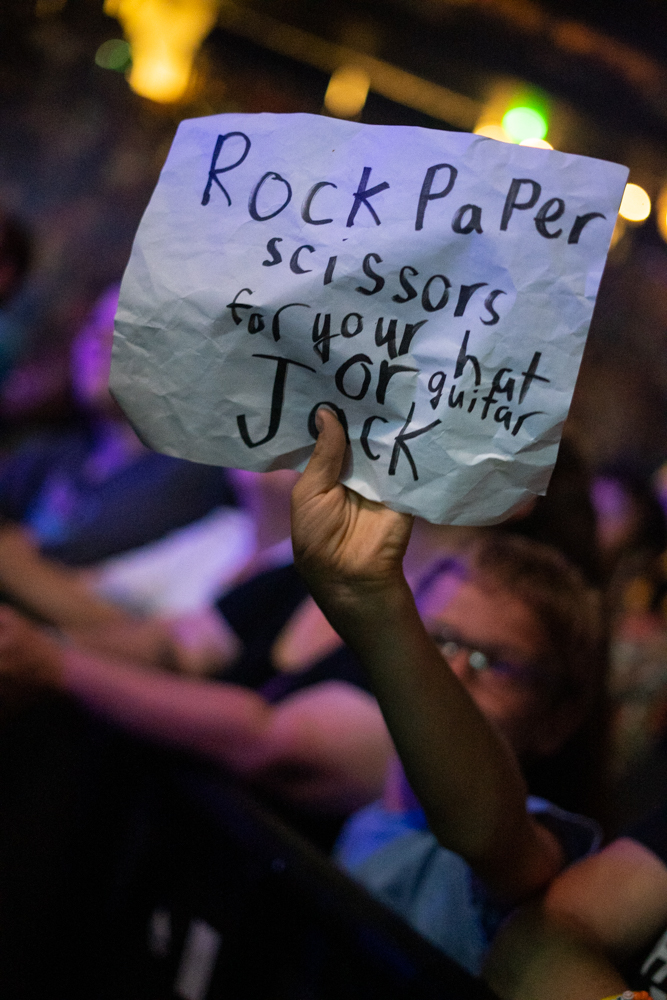 Rock PaPer
scissors
for your hat
or guitar
Jack